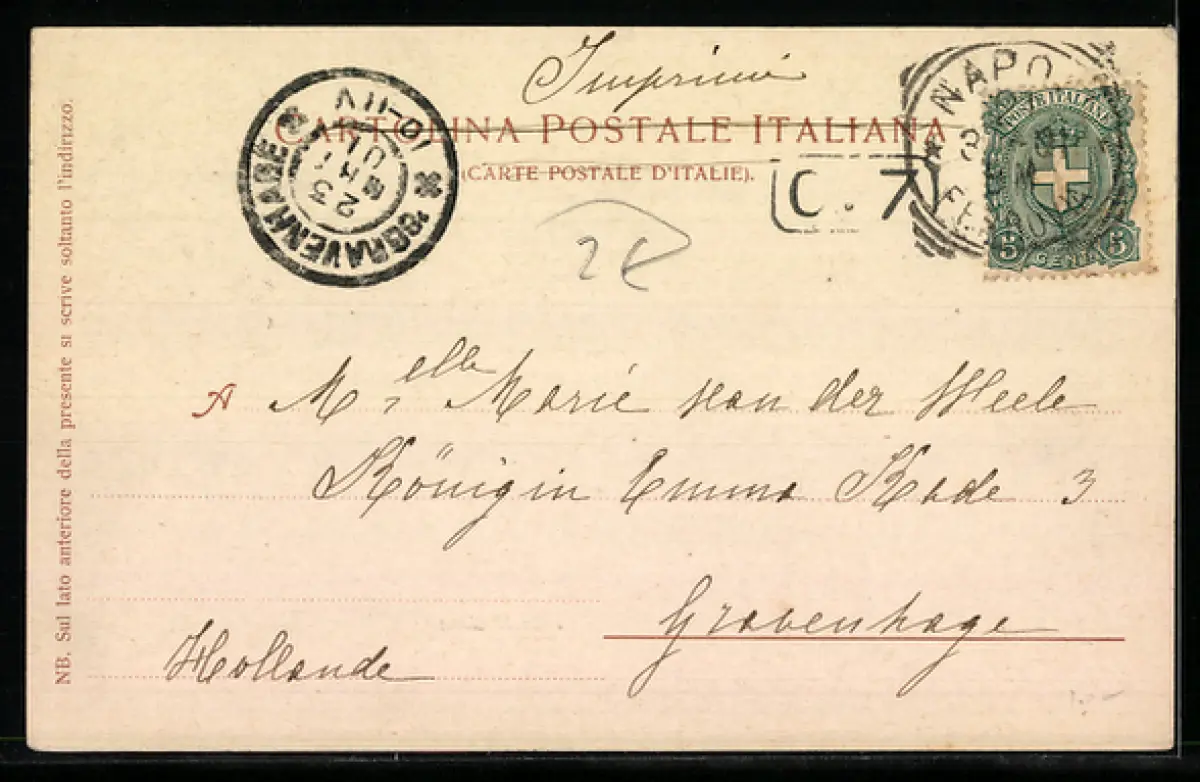 Imprimé
CARTOLINA POSTALE ITALIANA
(CARTE POSTALE D'ITALIE).
NAPO
FE
POSTE ITALIANE
5 CENT 5
C. 7
'SGRAVENHAGE
23
10-11V
2
A Melle Marie van der Weele
Königin Emma Kade 3
Gravenhage
Hollande
NB. Sul lato anteriore della presente si scrive soltanto l'indirizzo.